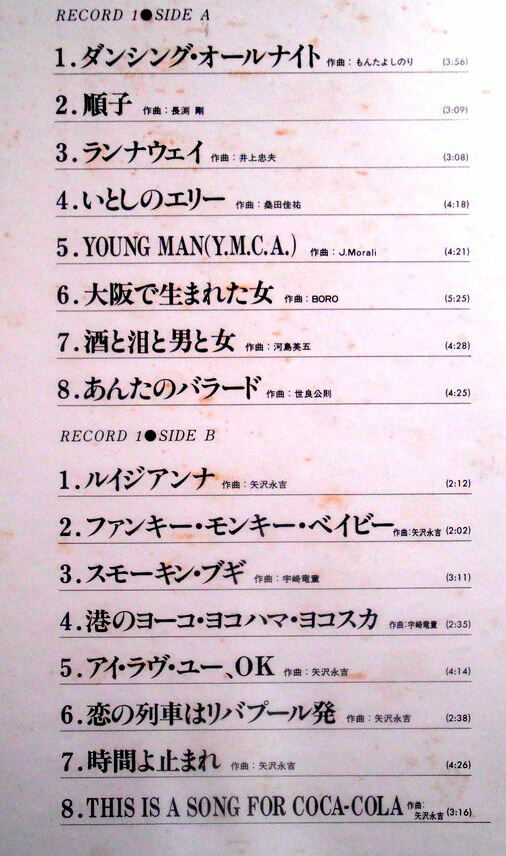 RECORD 1●SIDE A
1.ダンシング・オールナイト 作曲：もんたよしのり (3:56)
2.順子 作曲：長渕 剛 (3:09)
3.ランナウェイ 作曲：井上忠夫 (3:08)
4.いとしのエリー 作曲：桑田佳祐 (4:18)
5.YOUNG MAN(Y.M.C.A.) 作曲：J.Morali (4:21)
6.大阪で生まれた女 作曲：BORO (5:25)
7.酒と泪と男と女 作曲：河島英五 (4:28)
8.あんたのバラード 作曲：世良公則 (4:25)
RECORD 1●SIDE B
1.ルイジアンナ 作曲：矢沢永吉 (2:12)
2.ファンキー・モンキー・ベイビー 作曲：矢沢永吉 (2:02)
3.スモーキン・ブギ 作曲：宇崎竜童 (3:11)
4.港のヨーコ・ヨコハマ・ヨコスカ 作曲：宇崎竜童 (2:35)
5.アイ・ラヴ・ユー、OK 作曲：矢沢永吉 (4:14)
6.恋の列車はリバプール発 作曲：矢沢永吉 (2:38)
7.時間よ止まれ 作曲：矢沢永吉 (4:26)
8.THIS IS A SONG FOR COCA-COLA 作曲：矢沢永吉 (3:16)